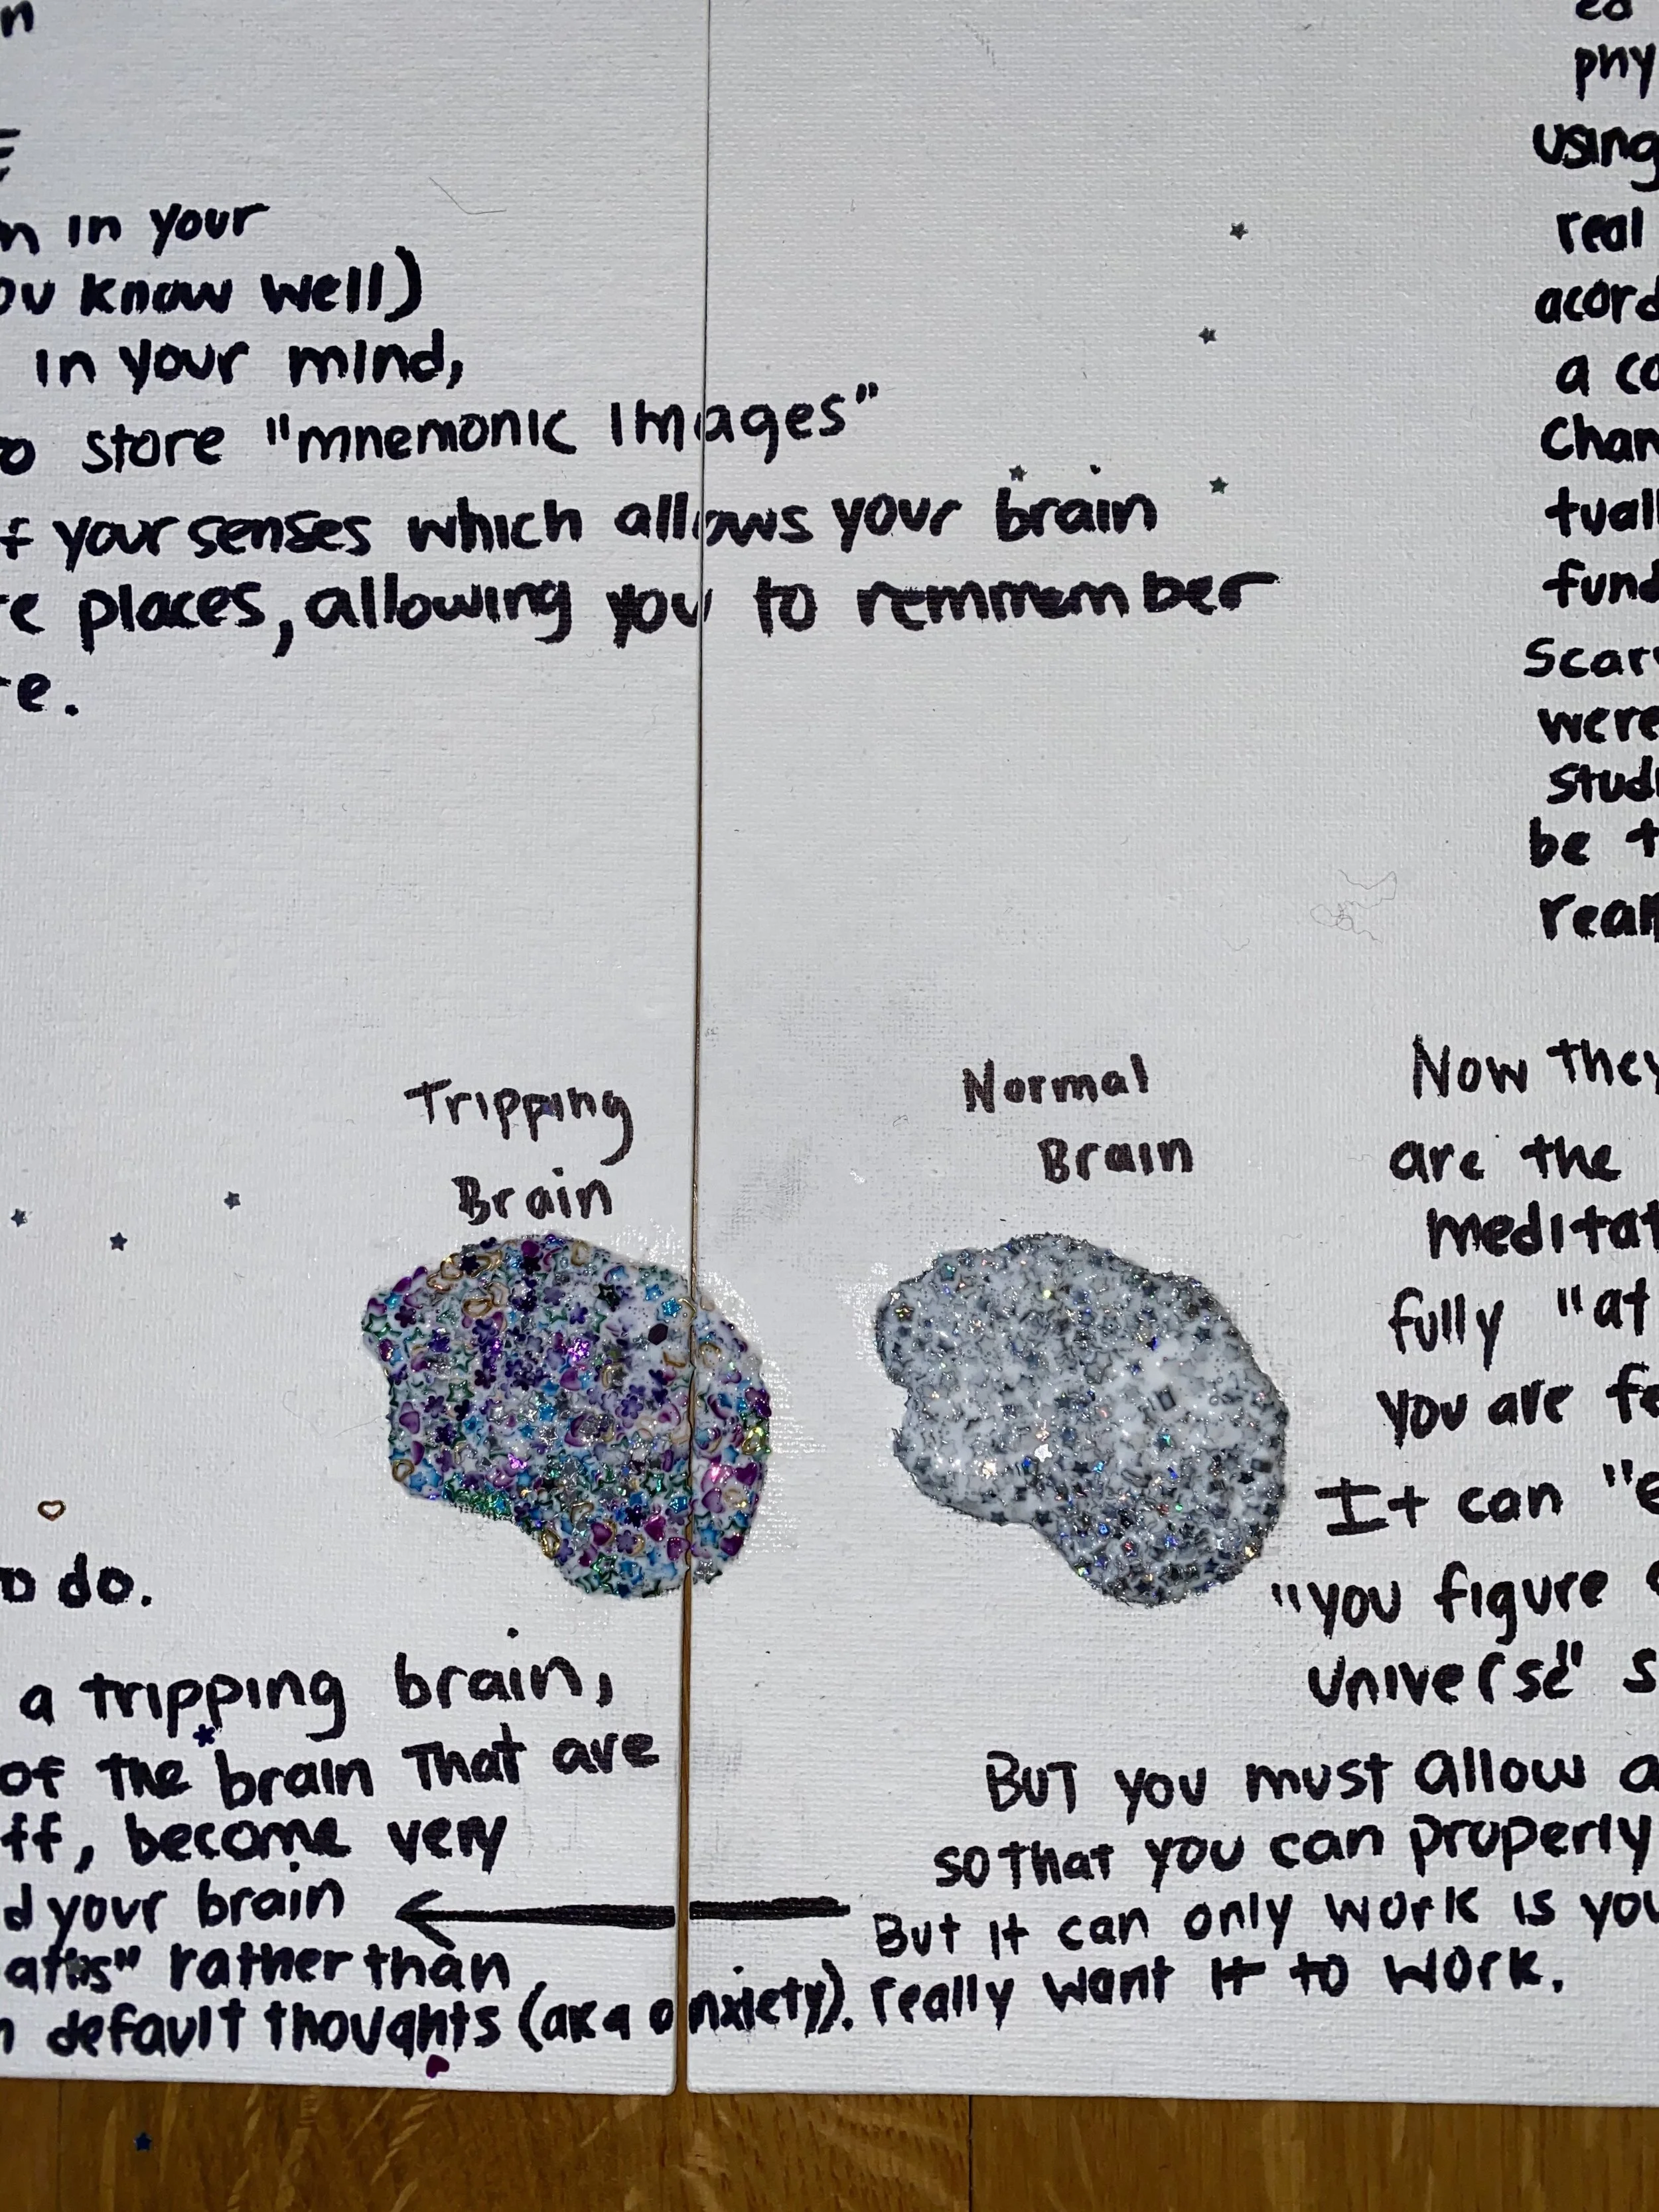 n
in your
know well)
in your mind,
store "mnemonic images"
your senses which allows your brain
places, allowing you to remmember
Tripping
Brain
do.
a tripping brain,
of the brain that are
ff, become very
d your brain
rather than
default thoughts (aka anxiety).
Normal
Brain
phy
using
real
acord
a co
Chan
tuall
fund
Scary
were
Studi
be t
real
Now they
are the
meditat
fully "at
you are fe
It can "e
"you figure
universe" s
But you must allow a
so that you can properly
But it can only work is you
really want it to work.